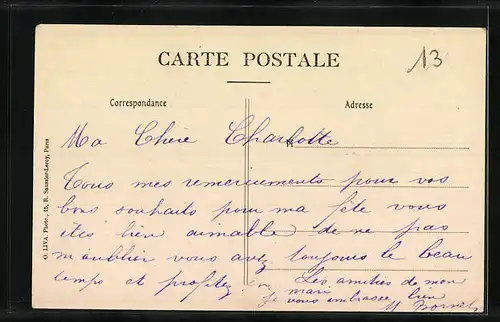 CARTE POSTALE
13
Correspondance
Adresse
Ma Chère Charlotte
Tous mes remerciements pour vos
bons souhaits pour ma fête vous
êtes bien aimable de ne pas
m'aublier vous avez toujours le beau
temps et profitez en
Les amitiés de mon
mari
Je vous embrasse bien
M
O. LIVA. Photo., 15, R. Saussier-Leroy, Paris